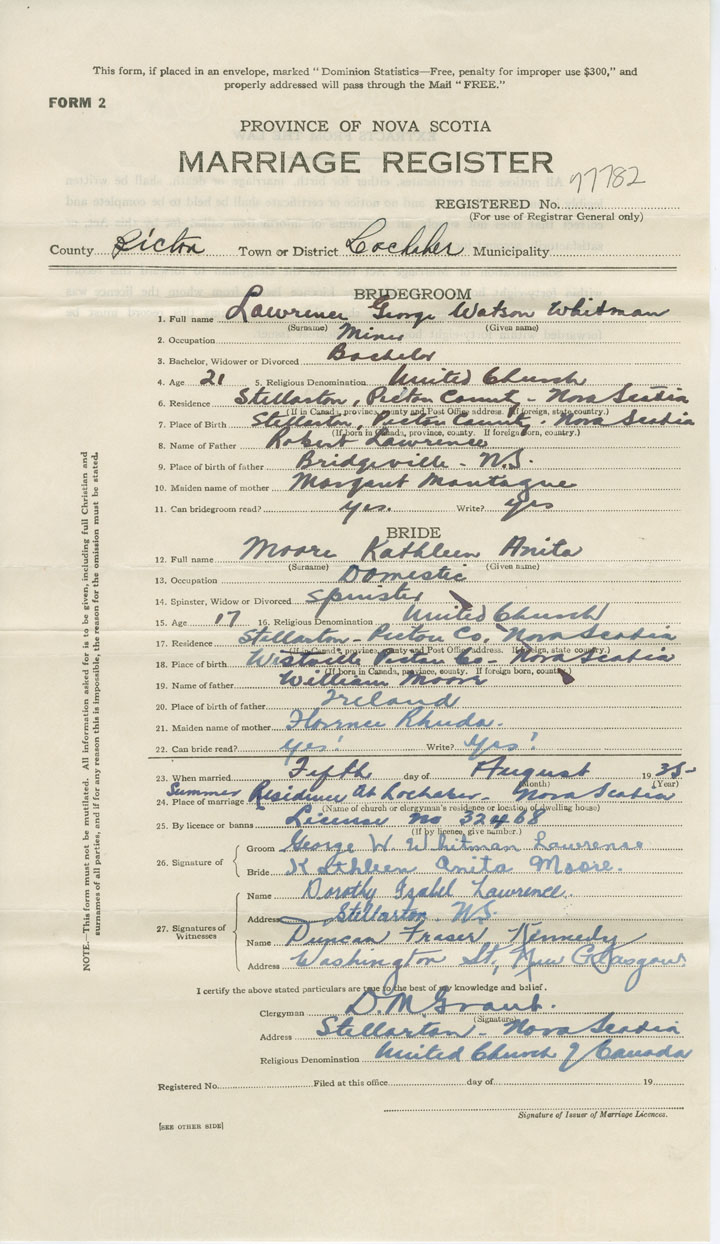 This form, if placed in an envelope, marked "Dominion Statistics—Free, penalty for improper use $300," and
properly addressed will pass through the Mail "FREE."
FORM 2
PROVINCE OF NOVA SCOTIA
MARRIAGE REGISTER
77782
REGISTERED No.
(For use of Registrar General only)
County Pictou Town or District Lochaber Municipality
BRIDEGROOM
1. Full name Lawrence George Watson Whitman
(Surname) (Given name)
2. Occupation Miner
3. Bachelor, Widower or Divorced Bachelor
4. Age 21 5. Religious Denomination United Church
6. Residence Stellarton, Pictou County - Nova Scotia
(If in Canada, province, county and Post Office address. If foreign, state country.)
7. Place of Birth Stellarton, Pictou County - Nova Scotia
(If born in Canada, province, county. If foreign born, country.)
8. Name of Father Robert Lawrence
9. Place of birth of father Bridgeville - N.S.
10. Maiden name of mother Margaret Montague
11. Can bridegroom read? yes. Write? yes
BRIDE
12. Full name Moore Kathleen Anita
(Surname) (Given name)
13. Occupation Domestic
14. Spinster, Widow or Divorced Spinster
15. Age 17 16. Religious Denomination United Church
17. Residence Stellarton - Pictou Co. Nova Scotia
(If in Canada, province, county and Post Office address. If foreign, state country.)
18. Place of birth Westville Pictou Co - Nova Scotia
(If born in Canada, province, county. If foreign born, country)
19. Name of father William Moore
20. Place of birth of father Ireland
21. Maiden name of mother Florence Rhuda.
22. Can bride read? yes! Write? Yes!
23. When married Fifth day of August 1935
(Month) (Year)
Summer Residence at Lochaber - Nova Scotia
24. Place of marriage
(Name of church or clergyman's residence or location of dwelling house)
25. By licence or banns License no 32468
(If by licence, give number.)
26. Signature of
Groom George W. Whitman Lawrence
Bride Kathleen Anita Moore.
27. Signatures of Witnesses
Name Dorothy Isabel Lawrence.
Address Stellarton. N.S.
Name Duncan Fraser Kennedy
Address Washington St, New Glasgow.
I certify the above stated particulars are true to the best of my knowledge and belief.
Clergyman D. M. Grant.
(Signature)
Address Stellarton - Nova Scotia
Religious Denomination United Church of Canada
Registered No. Filed at this office day of 19
Signature of Issuer of Marriage Licences.
[SEE OTHER SIDE]
NOTE.—This form must not be mutilated. All information asked for is to be given, including full Christian and
surnames of all parties, and if for any reason this is impossible, the reason for the omission must be stated.